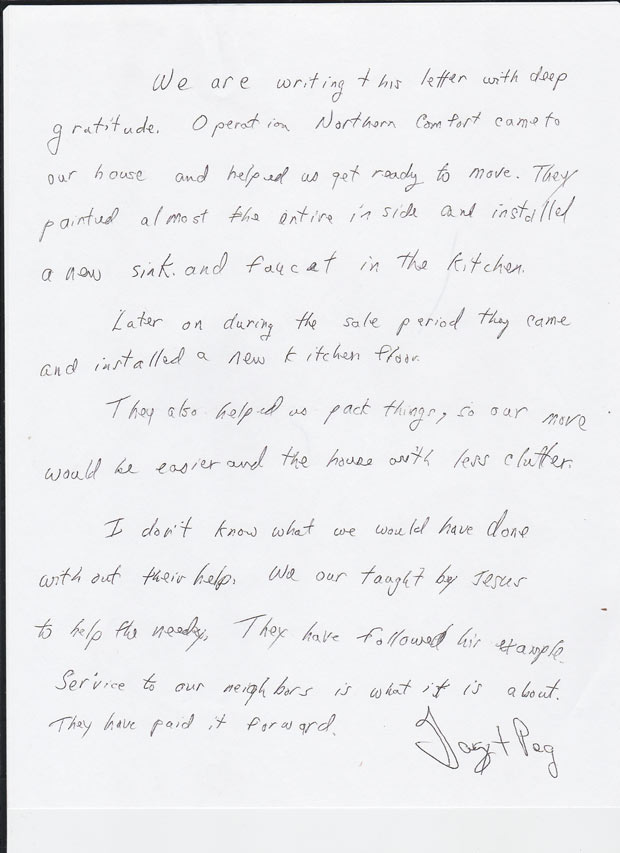 We are writing this letter with deep
gratitude. Operation Northern Comfort came to
our house and helped us get ready to move. They
painted almost the entire inside and installed
a new sink. and faucet in the kitchen.
Later on during the sale period they came
and installed a new kitchen floor.
They also helped us pack things, so our move
would be easier and the house with less clutter.
I don't know what we would have done
with out their help. We our taught by Jesus
to help the needy. They have followed his example.
Service to our neighbors is what it is about.
They have paid it forward.
+ Peg